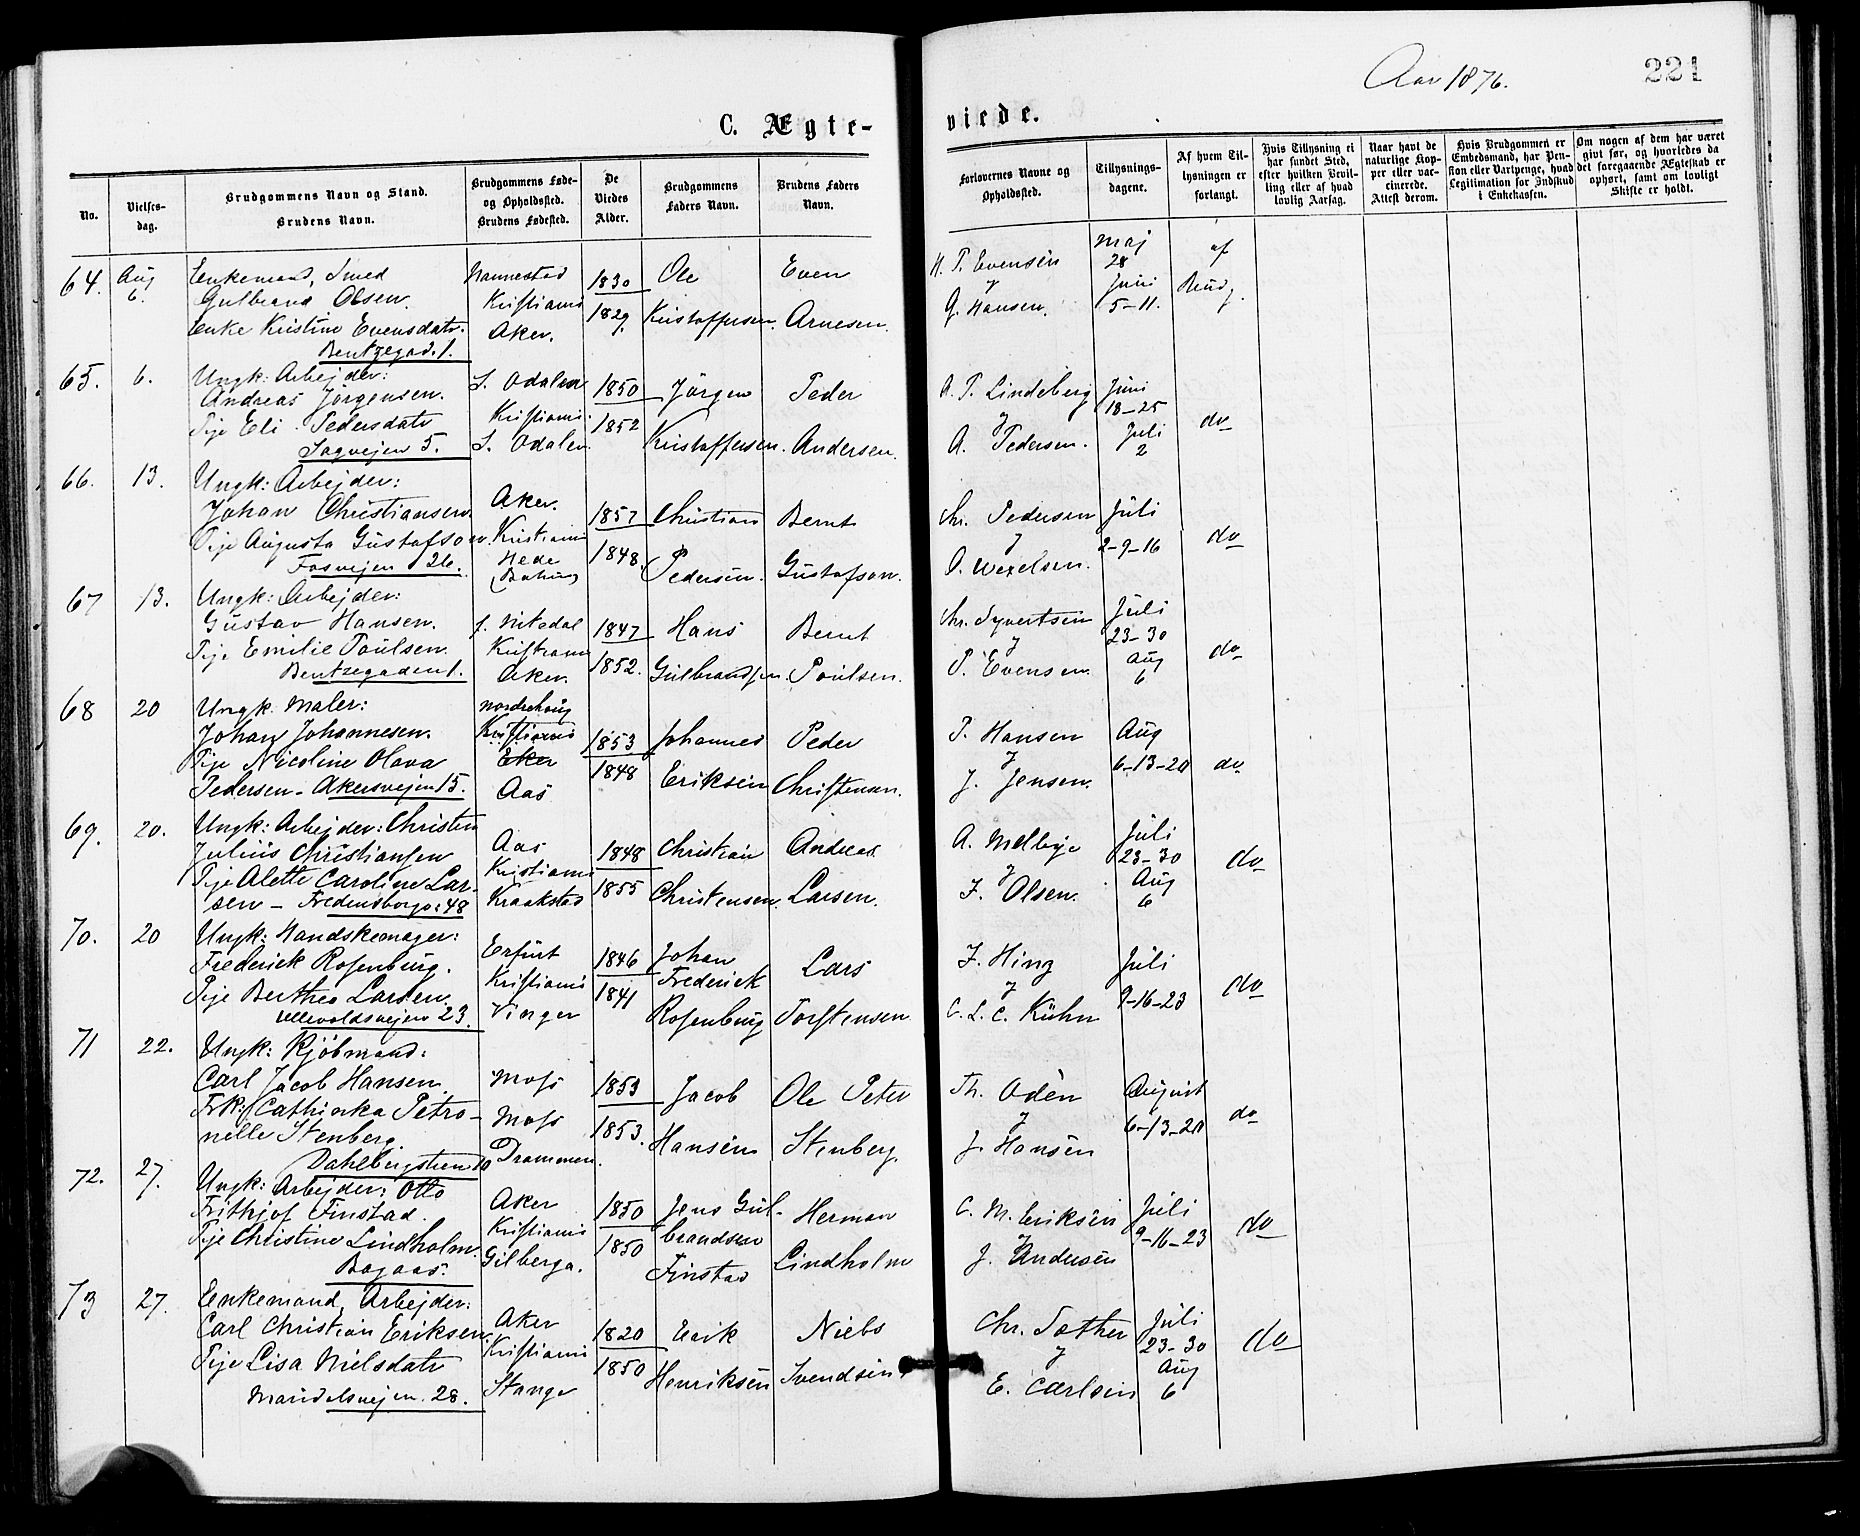 Aar 1876.
221
C. Ægte-
viede.
No.
Vielses-
dag.
Brudgommens Navn og Stand.
Brudens Navn.
Brudgommens Føde-
og Opholdssted.
Brudens Fødested.
De
Viedes
Alder.
Brudgommens
Faders Navn.
Brudens Faders
Navn.
Forlovernes Navne og
Opholdssted.
Tillysnings-
dagene.
Af hvem Til-
lysningen er
forlangt.
Hvis Tillysning ei
har fundet Sted,
efter hvilken Bevil-
ling eller af hvad
lovlig Aarsag.
Naar havt de
naturlige Kop-
per eller vac-
cinerede.
Attest derom.
Hvis Brudgommen er
Embedsmand, har Pen-
sion eller Vartpenge, hvad
Legitimation for Indskud
i Enkekassen.
Om nogen af dem har været
givt før, og hvorledes da
det foregaaende Ægteskab er
ophørt, samt om lovligt
Skifte er holdt.
64. Aug 6.
Enkemand, Smed
Gulbrand Olsen.
Enke Kristine Evensdatr.
Bentzegad. 1.
Nannestad
Kristiania
Aker.
1830
1829.
Ole
Kristoffersen.
Even
Arnesen.
H. P. Evensen
G. Hansen.
Maj
28
Juni
5-11.
af
Brudg.
65. 6.
Ungk: Arbejder:
Andreas Jørgensen.
Pige Eli Pedersdatr
Sagvejen 5.
S. Odalen
Kristiania
S. Odalen
1850
1852
Jörgen
Kristoffersen.
Peder
Andersen.
A. P. Lindeberg
A. Pedersen.
Juni
18-25
Juli
2
do
66. 13.
Ungk: Arbejder:
Johan Christiansen.
Pige Augusta Gustafson.
Fosvejen 26.
Aker.
Kristiania
Hede
1857
1848.
Christian
Pedersen.
Bernt
Gustafson.
Chr. Pedersen
O. Wexelsen.
Juli
2-9-16
do
67 13.
Ungk: Arbejder:
Gustav Hansen.
Pige Emilie Poulsen.
Bentzegaden 1.
f. Nitedal
Kristiania
Aker.
1847
1852.
Hans
Gulbrandsen.
Bernt
Poulsen.
Chr. Syvertsen
P. Evensen
Juli
23-30
Aug
6
do
68 20
Ungk. Maler:
Johan Johannesen.
Pige Nicoline Olava
Pedersen - Akersvejen 15.
Nordrehoug
Kristiania
Eker
Aas
1853
1848
Johannes
Eriksen
Peder
Christensen.
P. Hansen
J. Jensen.
Aug
6-13-20
do
69. 20.
Ungk: Arbejder: Christen
Julius Christiansen
Pige Alette Caroline Lar-
sen - Fredensborgv: 48
Aas
Kristiania
Kraakstad
1848
1855
Christian
Christensen.
Andreas
Larsen.
A. Melbye
F. Olsen.
Juli
23-30
Aug
6
do
70. 20
Ungk: Handskemager:
Frederick Rosenburg.
Pige Berthea Larsen.
Ullevoldsvejen 23.
Erfurt
Kristiania
Vinger
1846
1841
Johan
Frederick
Rosenburg
Lars
Torstensen
F. Hinz
C. L. C. Kühn
Juli
9-16-23
do
71 22.
Ungk: Kjöbmand:
Carl Jacob Hansen
Frk: Cathinka Petro-
nelle Stenberg.
Dahlbergstien 10
Moss
Moss
Drammen.
1853
1853.
Jacob
Hansen
Ole Peter
Stenberg
Th. Odén
J. Hansen
August
6-13-20
do
72. 27.
Ungk: Arbejder: Otto
Frithjof Finstad.
Pige Christine Lindholm.
Bagaas.
Aker
Kristiania
Gilberga.
1850
1850
Jens Gul-
brandsen
Finstad
Herman
Lindholm
C. M. Eriksen
J. Andersen
Juli
9-16-23
do
73 27.
Enkemand, Arbejder:
Carl Christian Eriksen.
Pige Lisa Nielsdatr
Maridalsvejen. 28.
Aker
Kristiania
Stange
1820
1850
Erik
Henriksen
Niels
Svendsen
Chr. Sæther
E. Carlsen
Juli
23-30
Aug
6
do